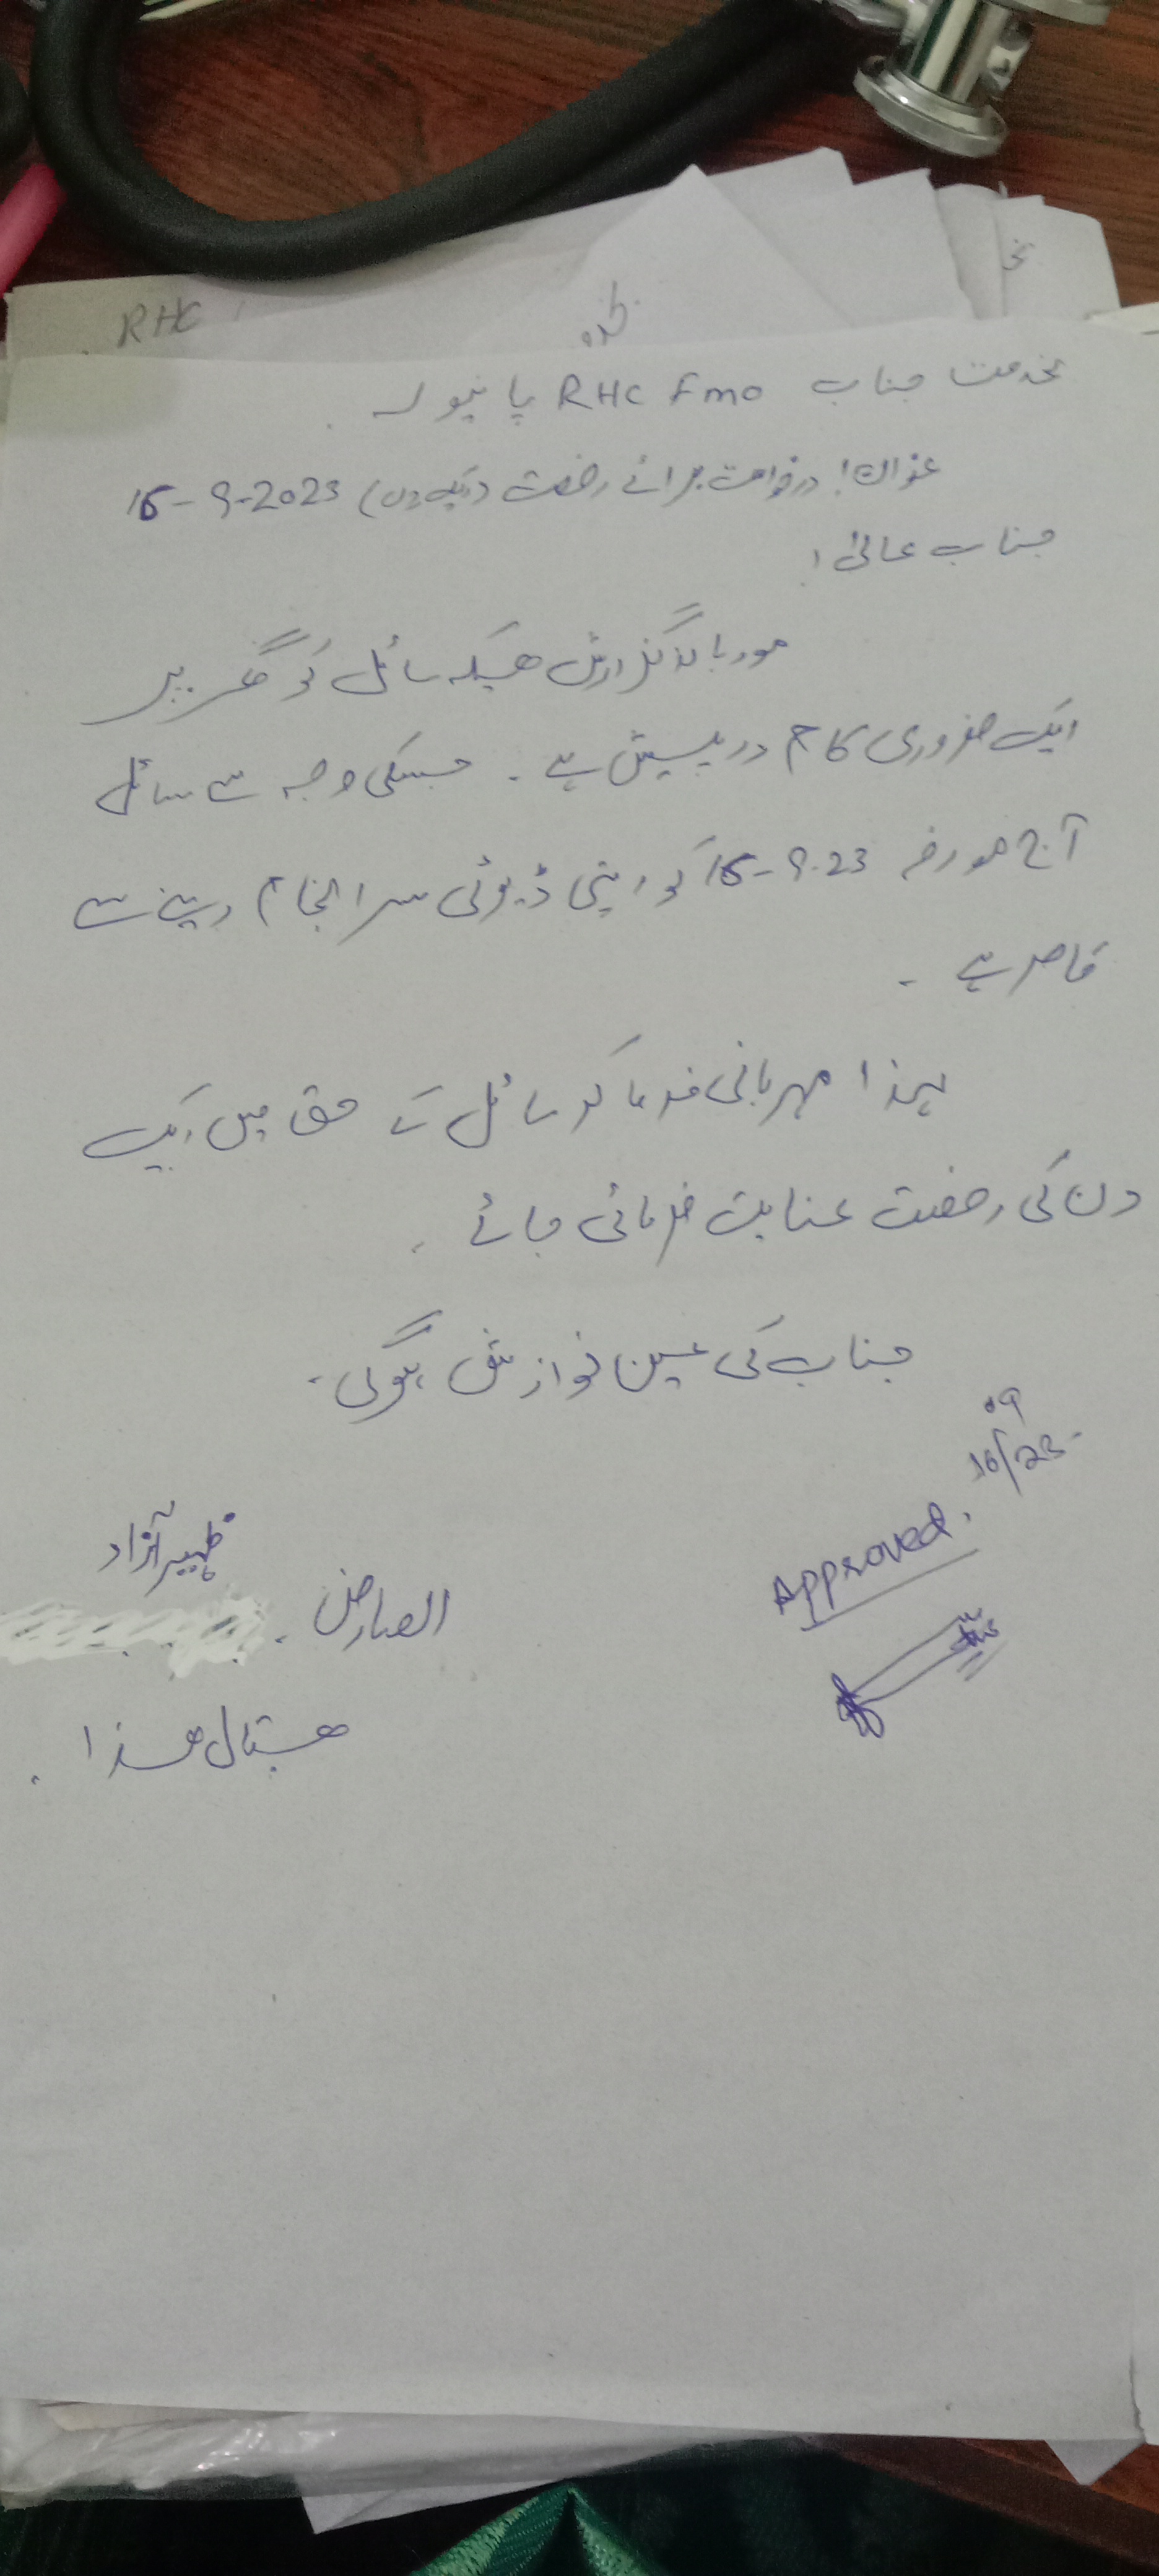 RHC
بخدمت جناب RHC Fmo پانیولہ
عنوان! درخواست برائے رخصت (ایک دن) 16-9-2023
جناب عالی!
مودبانہ گزارش ھیکہ سائل کو گھر پر
ایک ضروری کام درپیش ہے۔ جسکی وجہ سے سائل
آج مورخہ 16-9-23 کو اپنی ڈیوٹی سرانجام دینے سے
قاصر ہے۔
لہذا مہربانی فرما کر سائل کے حق میں ایک
دن کی رخصت عنایت فرمائی جائے۔
جناب کی عین نوازش ہوگی۔
09
16/23
Approved.
ظہیر آزاد
العارض۔
ھسپتال ھذا۔